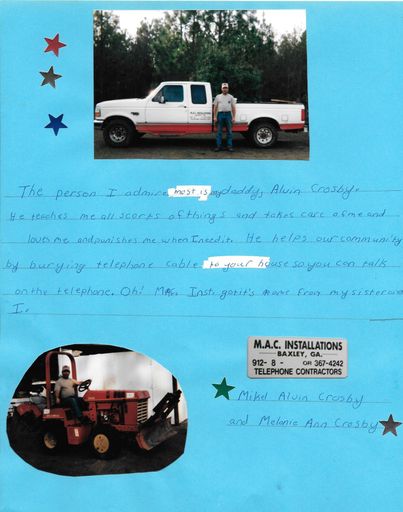 The person I admire most is my daddy, Alvin Crosby.
He teaches me all scorts of things and takes care of me and
loves me and punishes me when I need it. He helps our community
by burying telephone cable to your house so you can talk
on the telephone. Oh! M.A.C. Inst. got it's name from my sister and
I.
M.A.C. INSTALLATIONS
BAXLEY, GA.
912- 8 - OR 367-4242
TELEPHONE CONTRACTORS
Mikel Alvin Crosby
and Melonie Ann Crosby